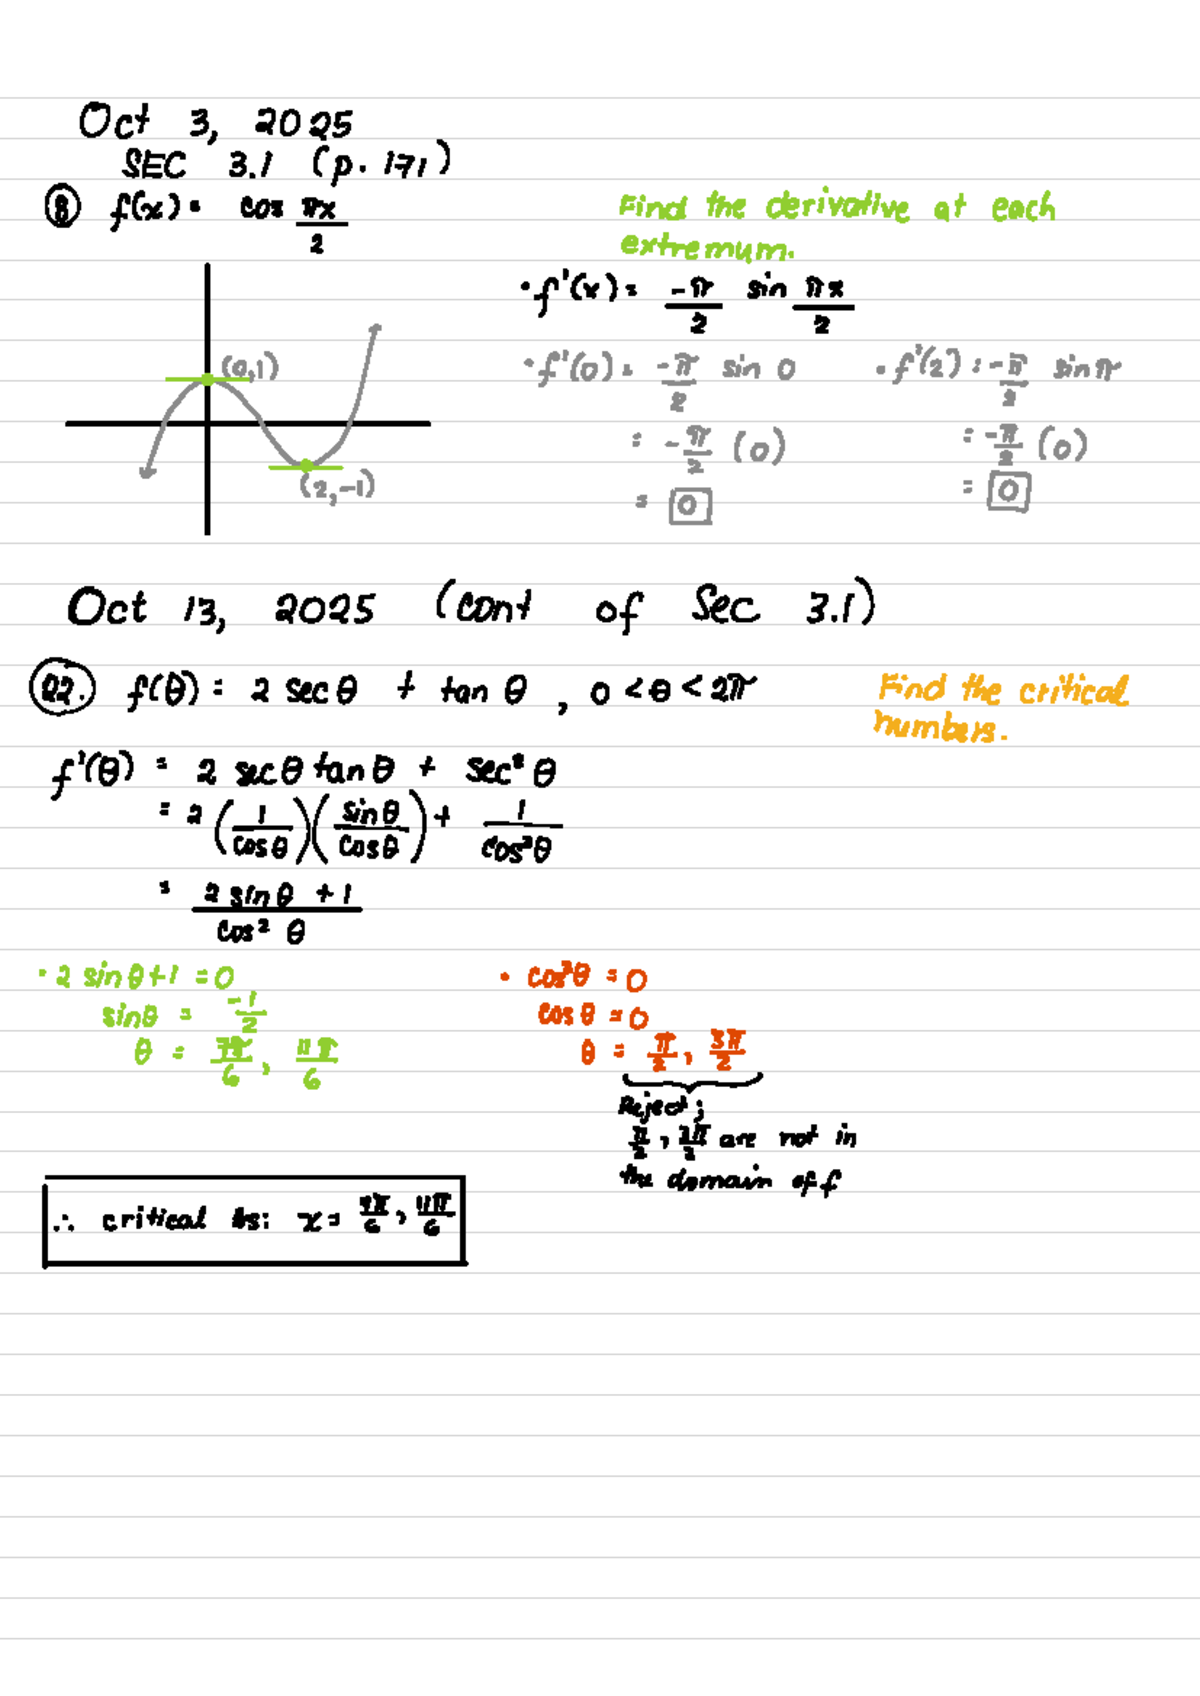 Oct 3, 2025
SEC 3.1 (p. 171)
⑧ f(x) = cos πx/2
Find the derivative at each
extremum.
• f'(x) = -π/2 sin πx/2
(0,1)
(2,-1)
• f'(0) = -π/2 sin 0
= -π/2 (0)
= 0
• f'(2) = -π/2 sin π
= -π/2 (0)
= 0
Oct 13, 2025 (cont of Sec 3.1)
22. f(θ) = 2 sec θ + tan θ , 0 < θ < 2π
Find the critical
numbers.
f'(θ) = 2 sec θ tan θ + sec² θ
= 2 (1/cos θ)(sin θ/cos θ) + 1/cos²θ
= 2 sin θ + 1/cos² θ
• 2 sin θ + 1 = 0
sin θ = -1/2
θ = 7π/6, 11π/6
• cos²θ = 0
cos θ = 0
θ = π/2, 3π/2
Reject;
π/2, 3π/2 are not in
the domain of f
∴ critical #s: x = 7π/6, 11π/6